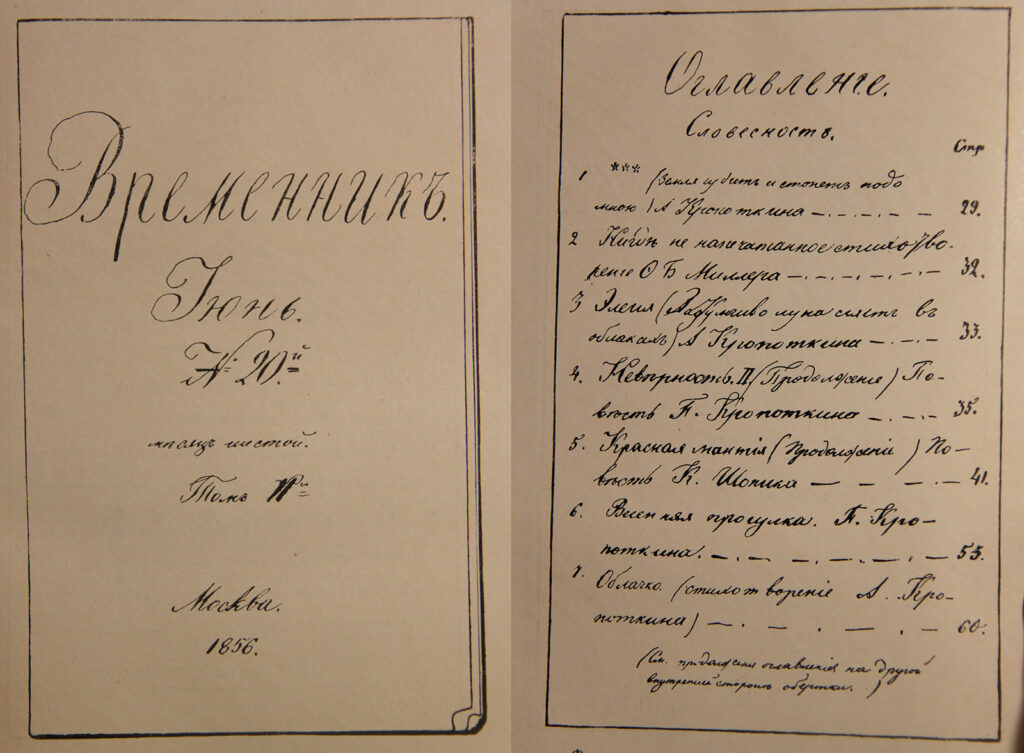 Временникъ.
Iюнь.
№ 20.й
мѣсяцъ шестой.
Томъ
Москва.
1856.
Оглавленiе.
Словесность.
Стр
1 *** (Земля дрожитъ и стонетъ подо
мною) А Кропоткина — . — . — . — — 29.
2 не напечатанное стихотво-
ренiе Ѳ Б Миллера — . — . — . — . — 32.
3 Элегiя (Задумчиво луна сiяетъ въ
облакахъ) А Кропоткина — . — . — 33.
4. Невѣрность. II (Продолженiе) По-
вѣсть П. Кропоткина — . — . — 35.
5. Красная мантiя (Продолженiе) По-
вѣсть К. Шопика — — — . — 41.
6. Весенняя прогулка. П. Кро-
поткина. — . — . — . — . — . — 55.
7. Облачко. (стихотворенiе А. Кро-
поткина) — . — . — . — . — 60.
(См. продолженiе оглавленiя на другой
внутренней сторонѣ обертки.)